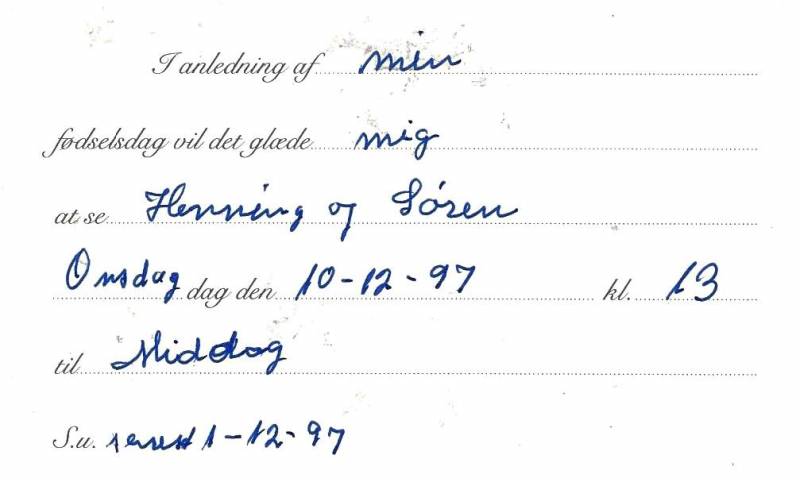 I anledning af min
fødselsdag vil det glæde mig
at se Henning og Sören
Onsdag dag den 10-12-97 kl. 13
til Middag
S.u. senest 1-12-97